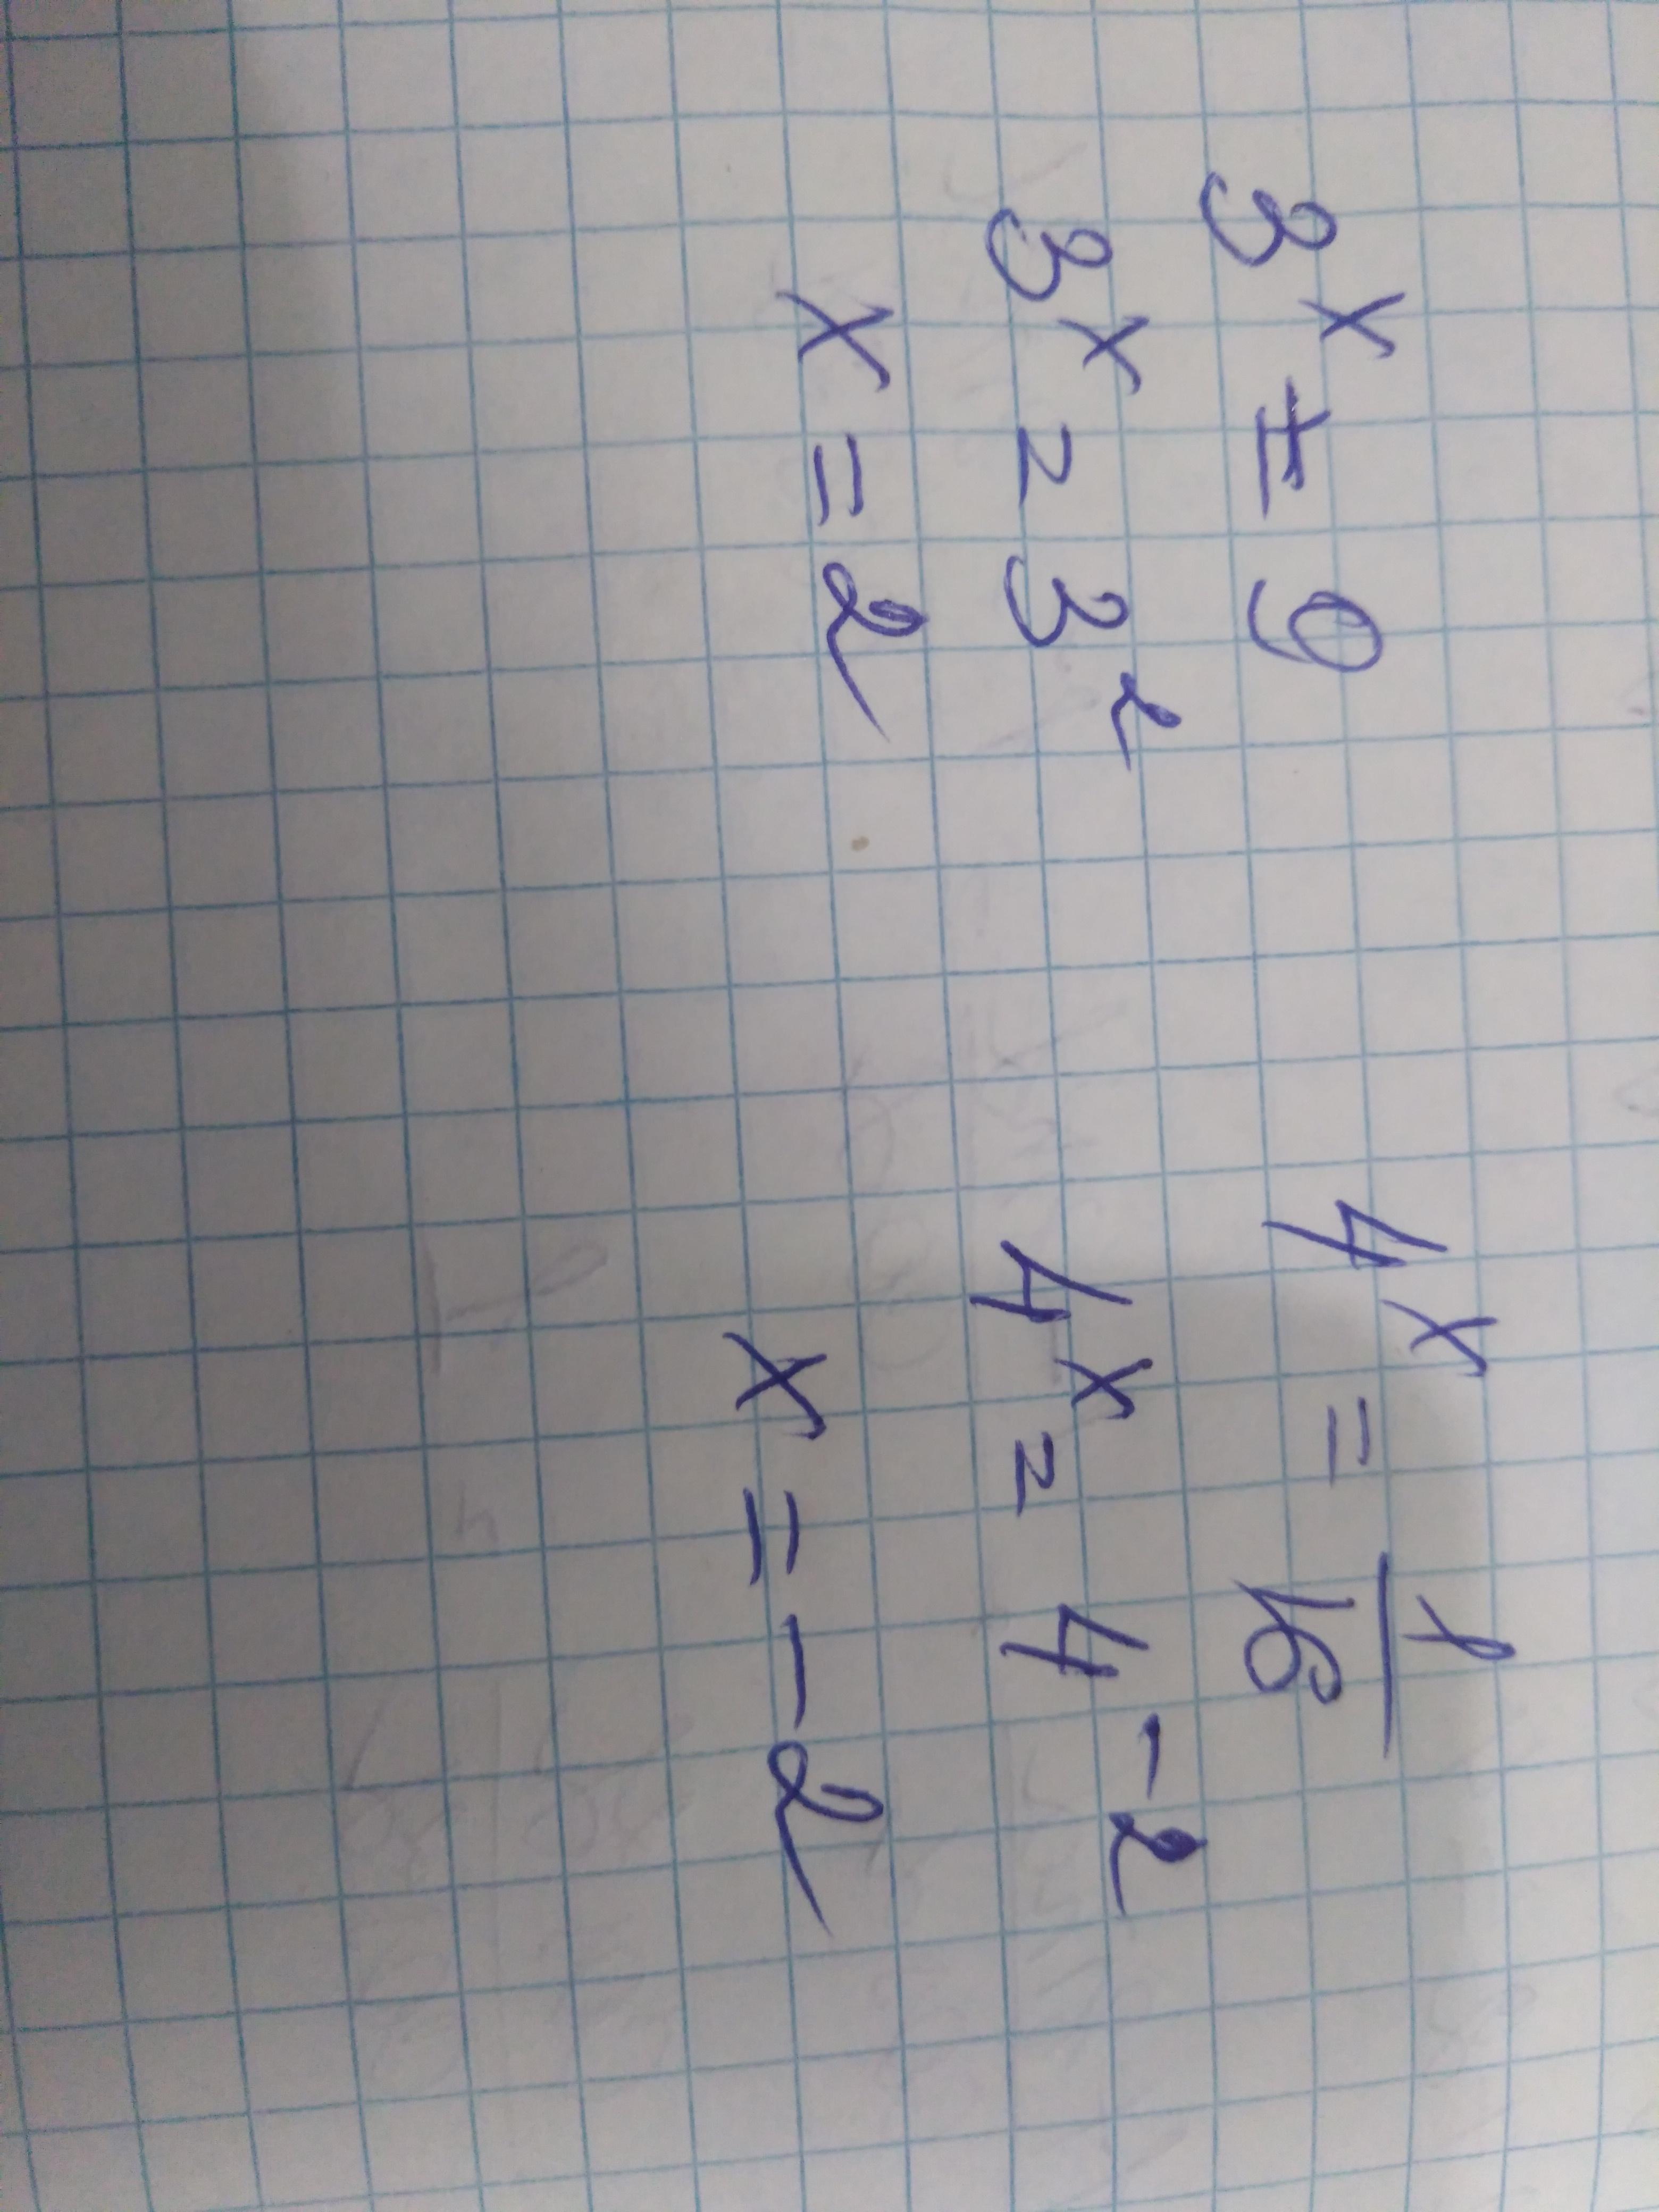 3^x = 9
3^x = 3^2
x = 2
4^x = 1/16
4^x = 4^-2
x = -2